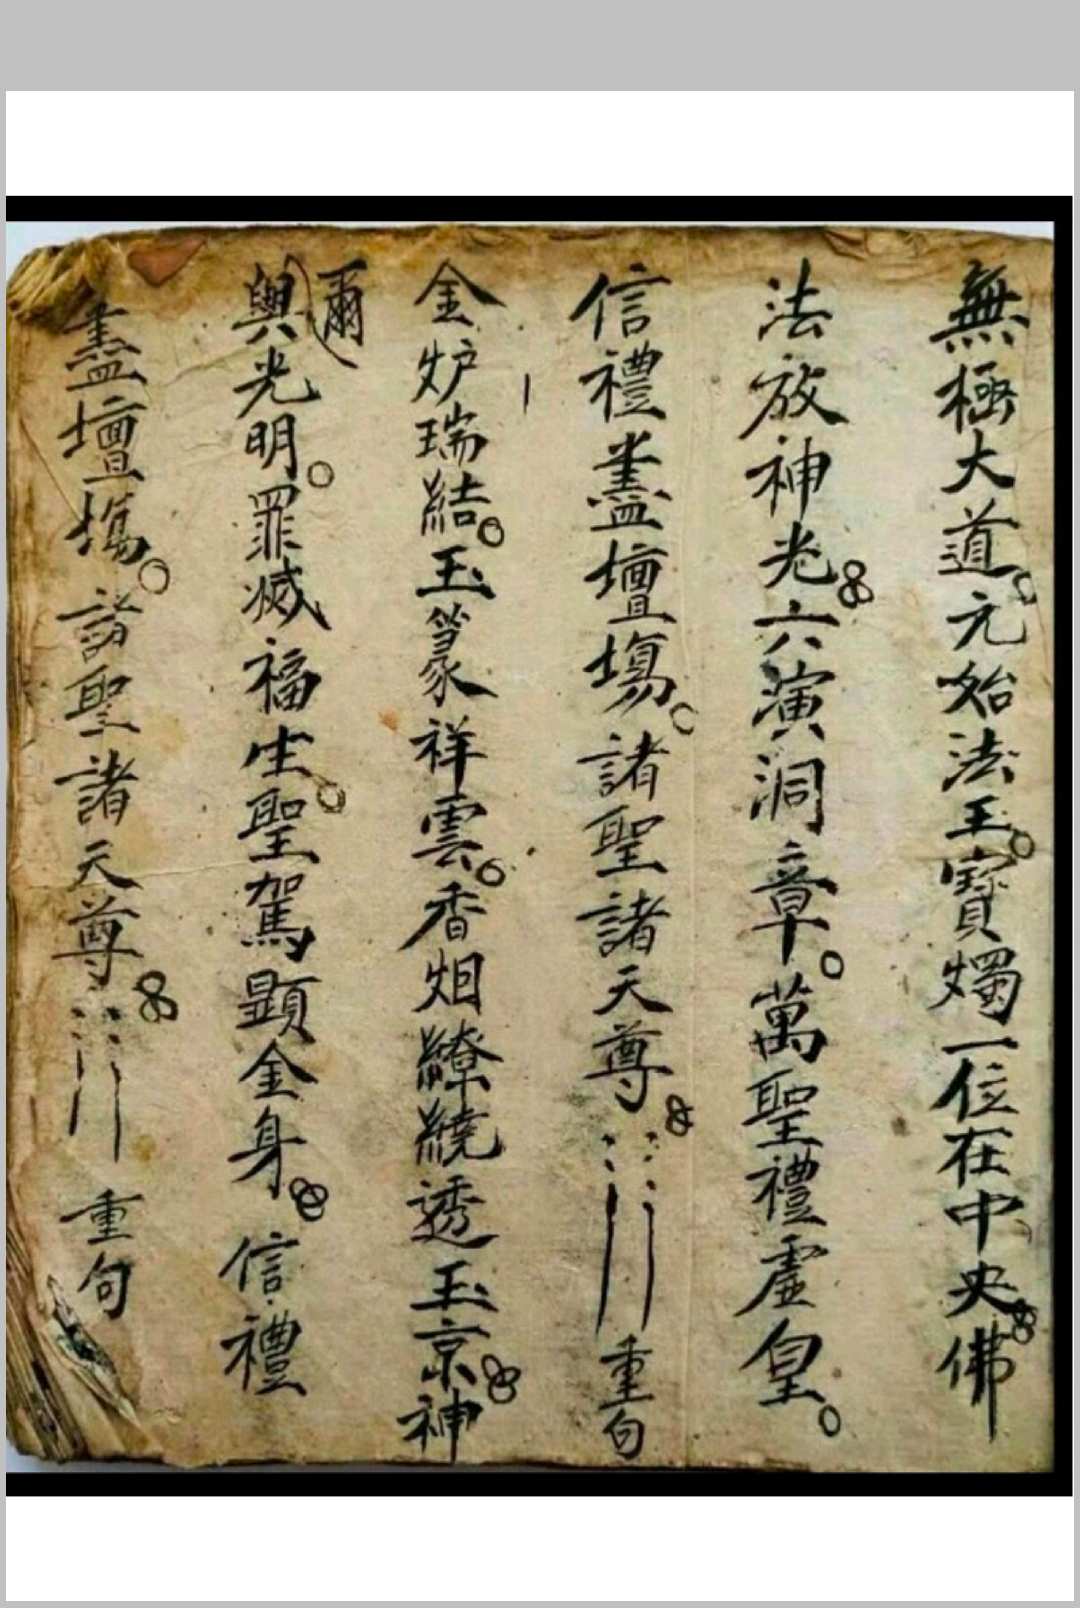 無極大道元始法王寶燭一位在中央佛
法放神光六演洞章萬聖禮虛皇
信禮盡壇塲諸聖諸天尊重句
金炉瑞結玉篆祥雲香烟繚繞透玉京神
爾
與光明罪滅福生聖駕顕金身信禮
盡壇塲諸聖諸天尊重句